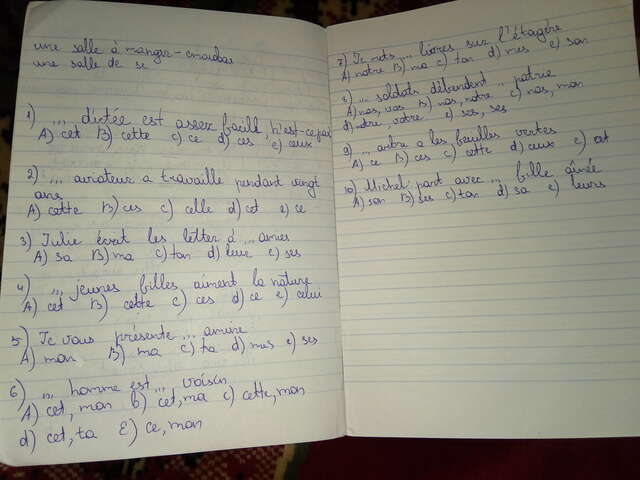 une salle à manger - столовая
une salle de se
1) ... dictée est assez facile, n'est-ce pas
A) cet B) cette c) ce d) ces e) ceux
2) ... aviateur a travaille pendant vingt
ans
A) cette B) ces c) celle d) cet e) ce
3) Julie écrit les letter à ... amies
A) sa B) ma c) ton d) leur e) ses
4) ... jeunes filles aiment la nature
A) cet B) cette c) ces d) ce e) celui
5) Je vous présente ... amie
A) mon B) ma c) ta d) mes e) ses
6) ... homme est ... voisin
A) cet, mon b) cet, ma c) cette, mon
d) cet, ta E) ce, mon
7) Je mets ... livres sur l'étagère
A) notre B) ma c) ton d) mes e) son
8) ... soldats défendent ... patrie
A) nos, vos B) nos, notre c) nos, mon
d) notre, votre e) ses, ses
9) ... arbre a les feuilles vertes
A) ce B) ces c) cette d) ceux e) cet
10) Michel part avec ... fille aînée
A) son B) ses c) ton d) sa e) leurs